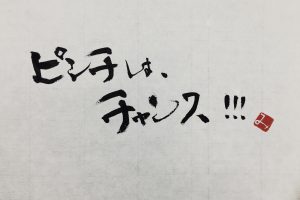 ピンチは、
チャンス!!!